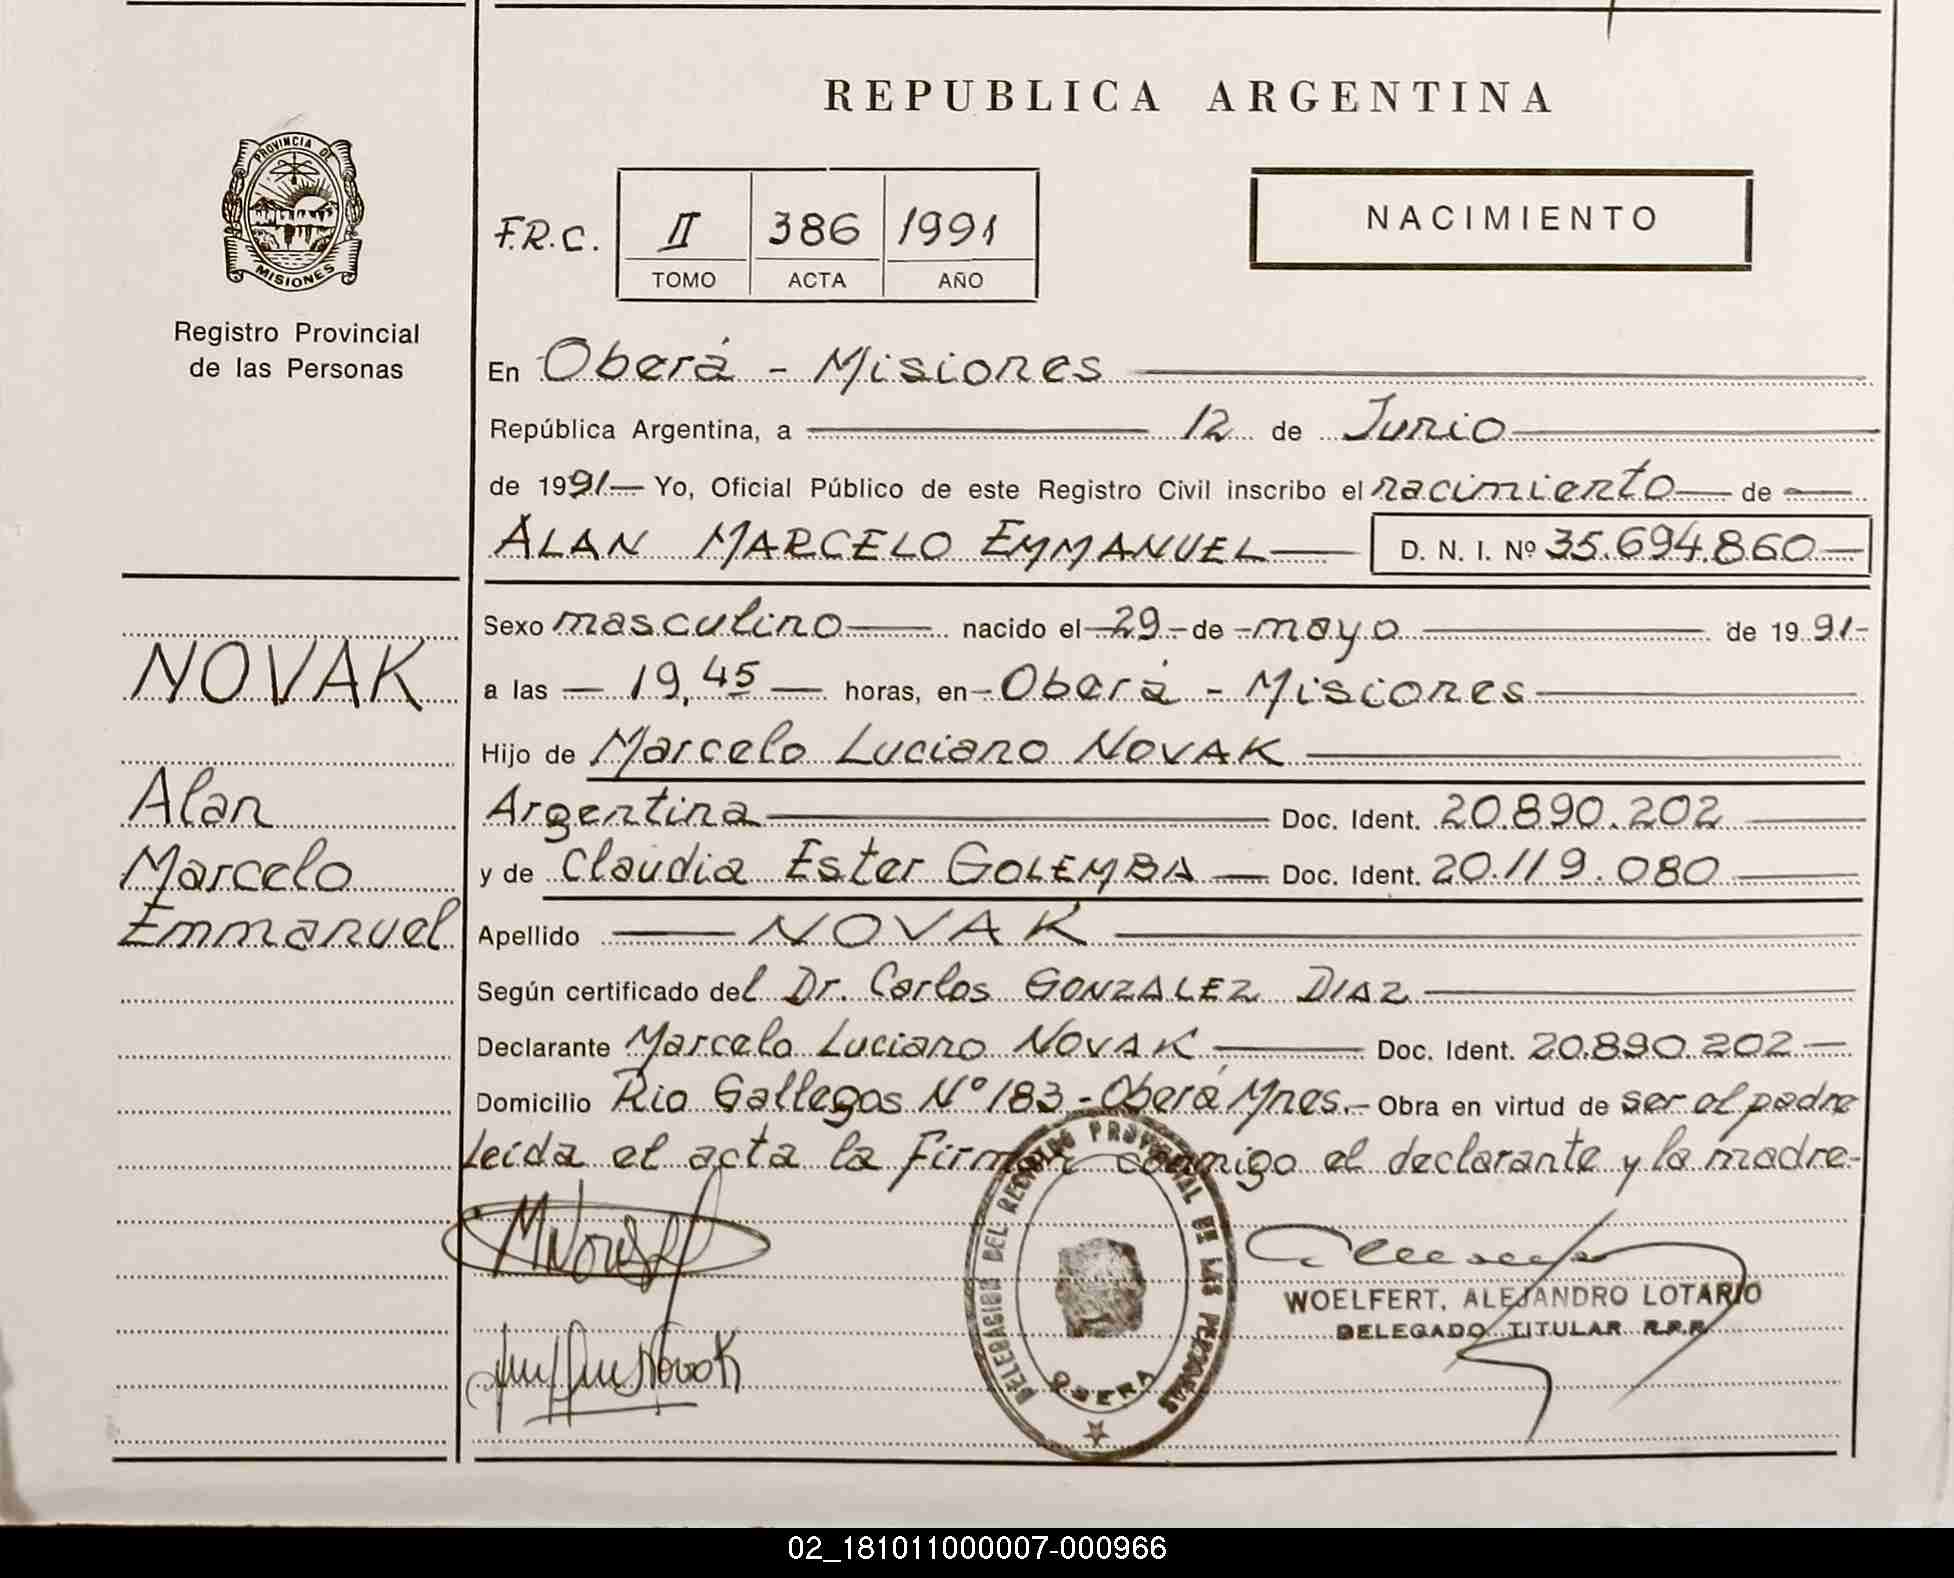 REPUBLICA ARGENTINA
PROVINCIA DE
MISIONES
Registro Provincial
de las Personas
F.R.C. II 386 1991
TOMO ACTA AÑO
NACIMIENTO
En Oberá - Misiones
República Argentina, a 12 de Junio
de 1991 Yo, Oficial Público de este Registro Civil inscribo el nacimiento de
ALAN MARCELO EMMANUEL D. N. I. Nº 35.694.860
NOVAK
Alan
Marcelo
Emmanuel
Sexo masculino nacido el 29 de mayo de 1991
a las 19,45 horas, en Oberá - Misiones
Hijo de Marcelo Luciano NOVAK
Argentina Doc. Ident. 20.890.202
y de Claudia Ester GOLEMBA Doc. Ident. 20.119.080
Apellido NOVAK
Según certificado del Dr. Carlos GONZALEZ DIAZ
Declarante Marcelo Luciano NOVAK Doc. Ident. 20.890.202
Domicilio Rio Gallegos Nº 183 - Oberá Mnes. - Obra en virtud de ser el padre
Leida el acta la Firman conmigo el declarante y la madre.
DELEGACION DEL REGISTRO PROVINCIAL DE LAS PERSONAS
OBERA
WOELFERT, ALEJANDRO LOTARIO
DELEGADO TITULAR R.P.P.
Novak
02_181011000007-000966